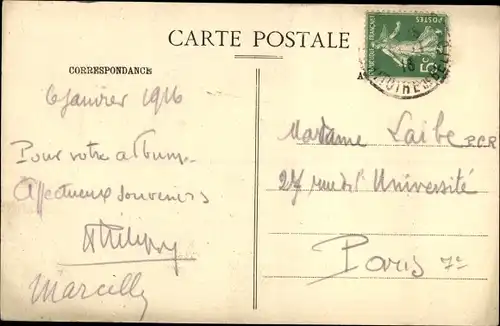 CARTE POSTALE
CORRESPONDANCE
6 Janvier 1916
Pour votre album.
Affectueux souvenirs
Marcilly
POSTES
Madame Laibe P.C.R
27, rue de l'Université
Paris 7e